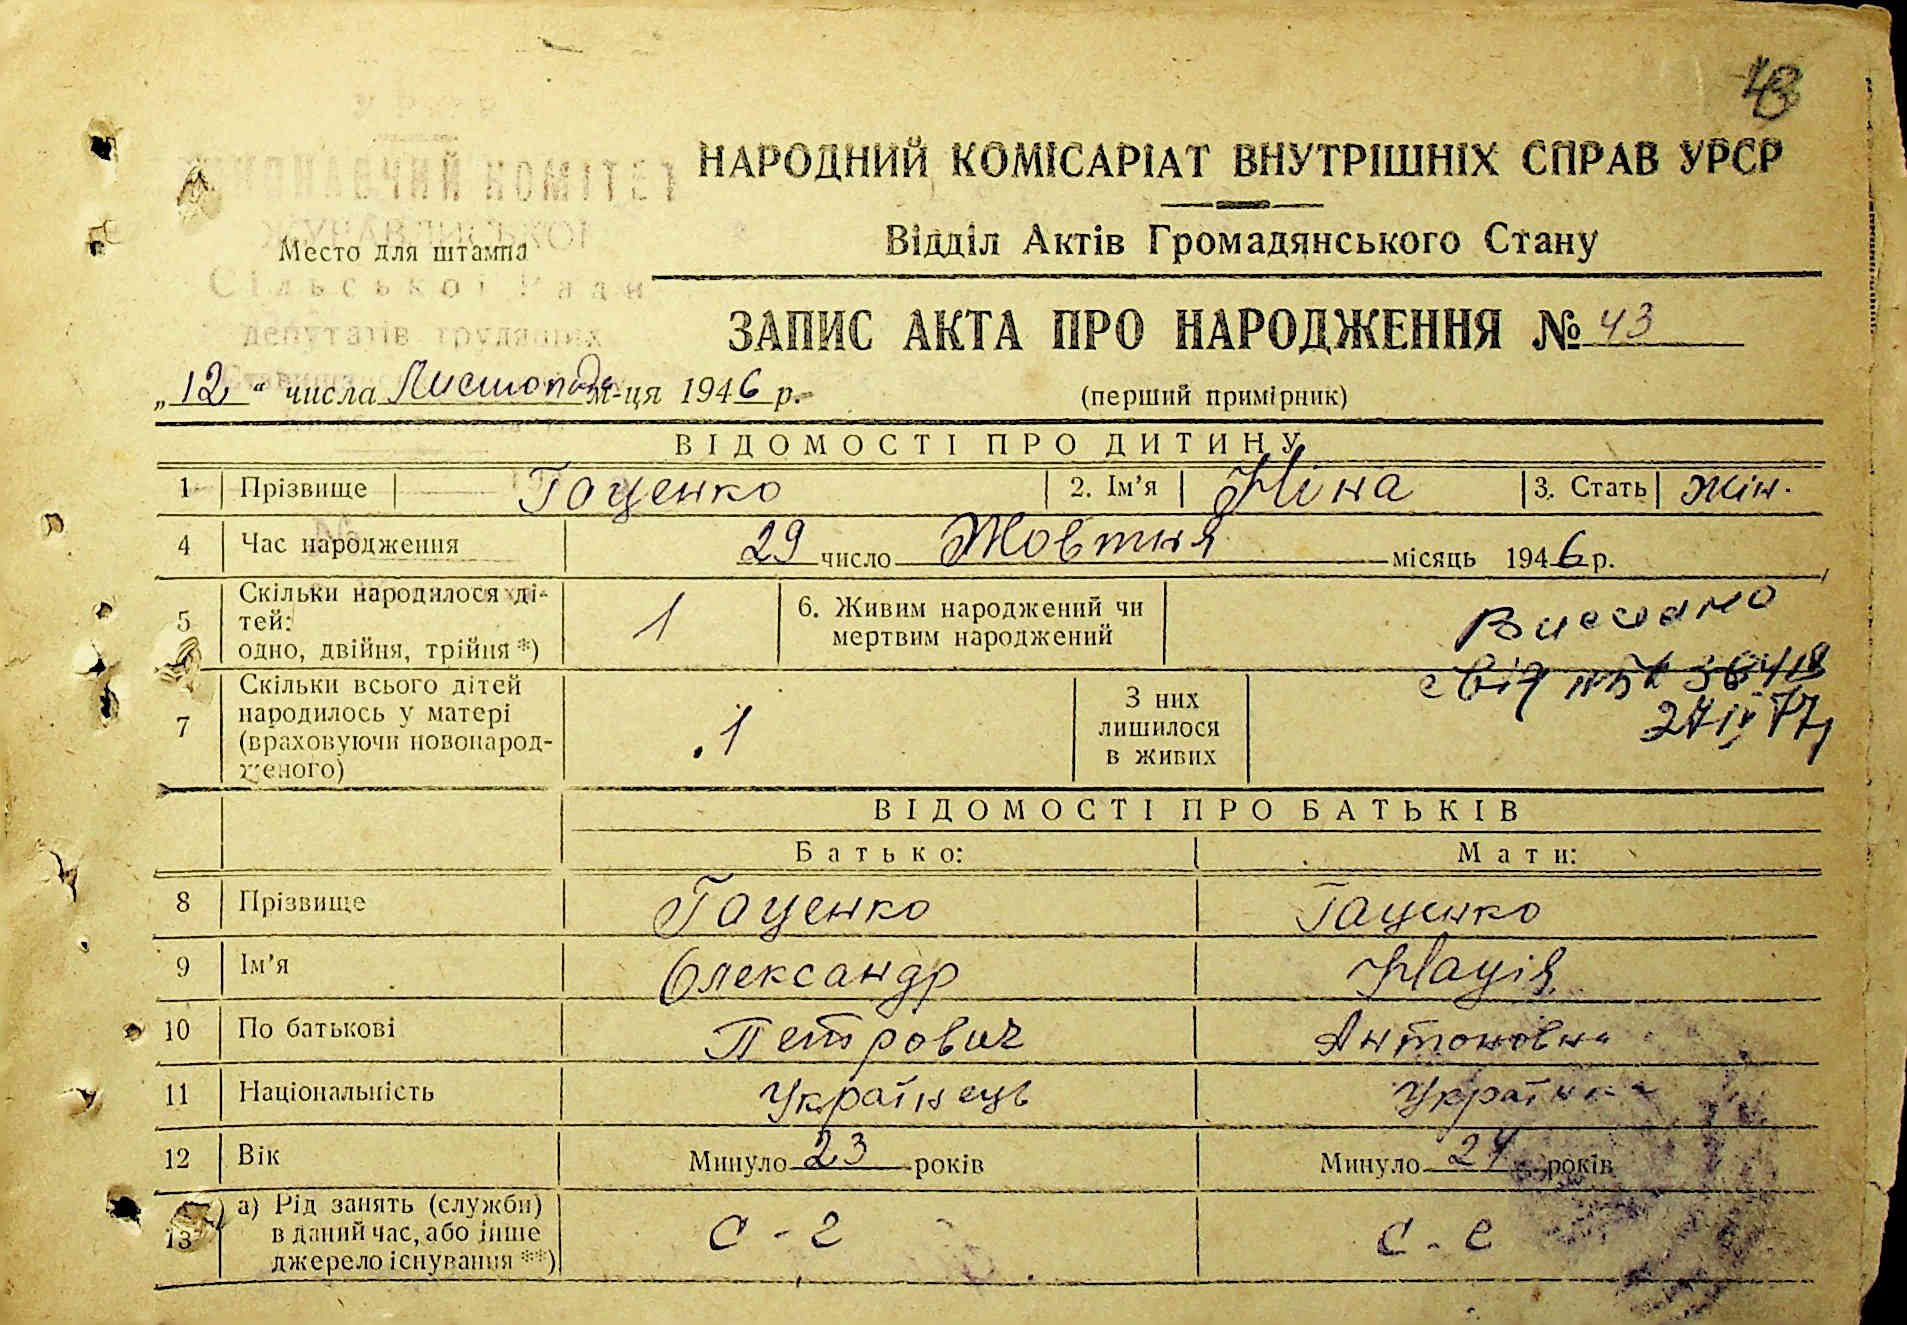 43
НАРОДНИЙ КОМІСАРІАТ ВНУТРІШНІХ СПРАВ УРСР
Відділ Актів Громадянського Стану
Место для штампа
Сільської Ради
депутатів трудящих
ЗАПИС АКТА ПРО НАРОДЖЕННЯ № 43
„12“ числа Листопада м-ця 1946 р.
(перший примірник)
ВІДОМОСТІ ПРО ДИТИНУ
1 Прізвище Гаценко 2. Ім’я Ніна 3. Стать Жін.
4 Час народження 29 число Жовтня місяць 1946 р.
5 Скільки народилося ді-
тей:
одно, двійня, трійня *) 1
6. Живим народжений чи
мертвим народжений
Виписано
свід
27 IV 77
7 Скільки всього дітей
народилось у матері
(враховуючи новонарод-
женого) 1
З них
лишилося
в живих
ВІДОМОСТІ ПРО БАТЬКІВ
Батько: Мати:
8 Прізвище Гаценко Гаценко
9 Ім’я Олександр
10 По батькові Петрович Антоновна
11 Національність Українець Українка
12 Вік Минуло 23 років Минуло 24 років
13 а) Рід занять (служби)
в даний час, або інше
джерело існування **)